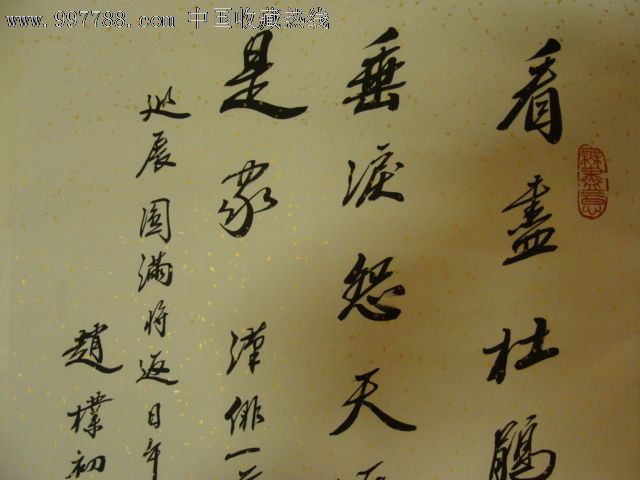 www.997788.com 中国收藏热线
看盡杜鵑
垂淚怨天
是家 漢俳一
巡展圓滿将返日
趙樸初